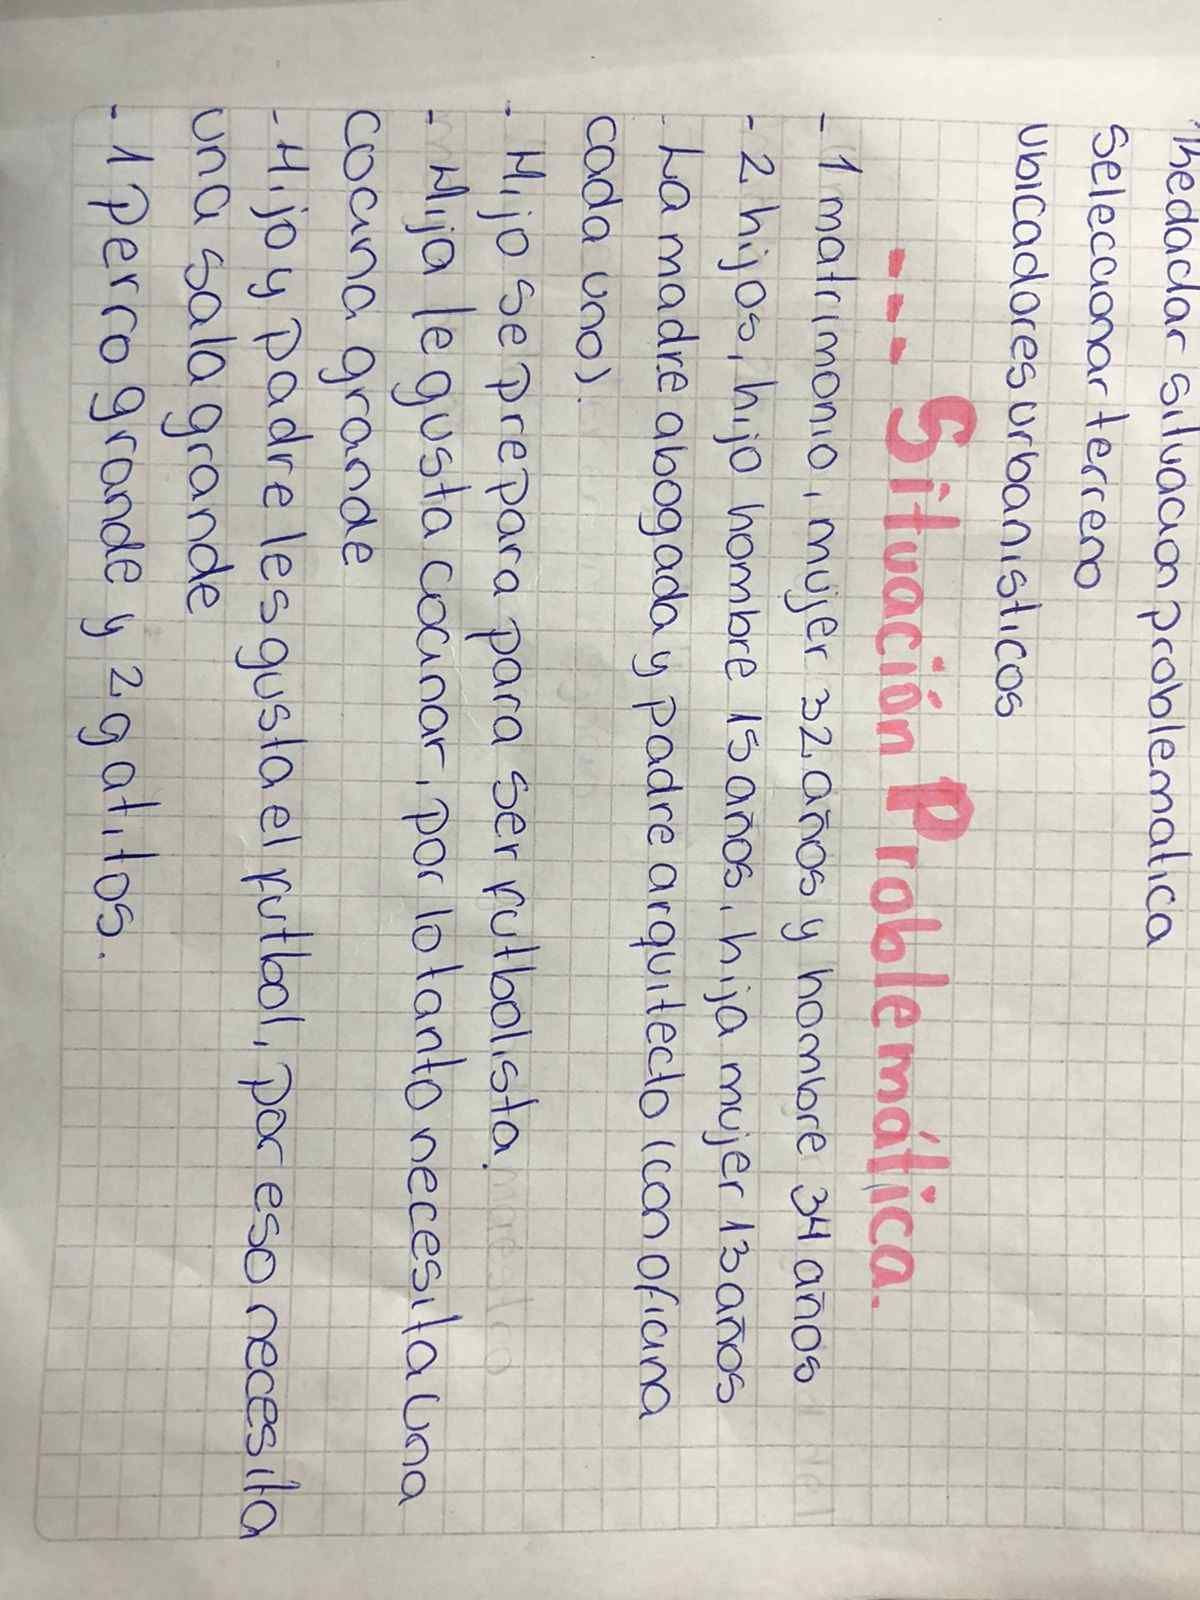 Redactar situacion problematica
Seleccionar terreno
Ubicadores urbanisticos
--- Situación Problemática.
- 1 matrimonio, mujer 32 años y hombre 34 años
- 2 hijos, hijo hombre 15 años, hija mujer 13 años
- La madre abogada y padre arquitecto (con oficina
cada uno).
- Hijo se prepara para ser futbolista.
- Hija le gusta cocinar, por lo tanto necesita una
cocina grande
- Hijo y padre les gusta el futbol, por eso necesita
una sala grande
- 1 perro grande y 2 gatitos.